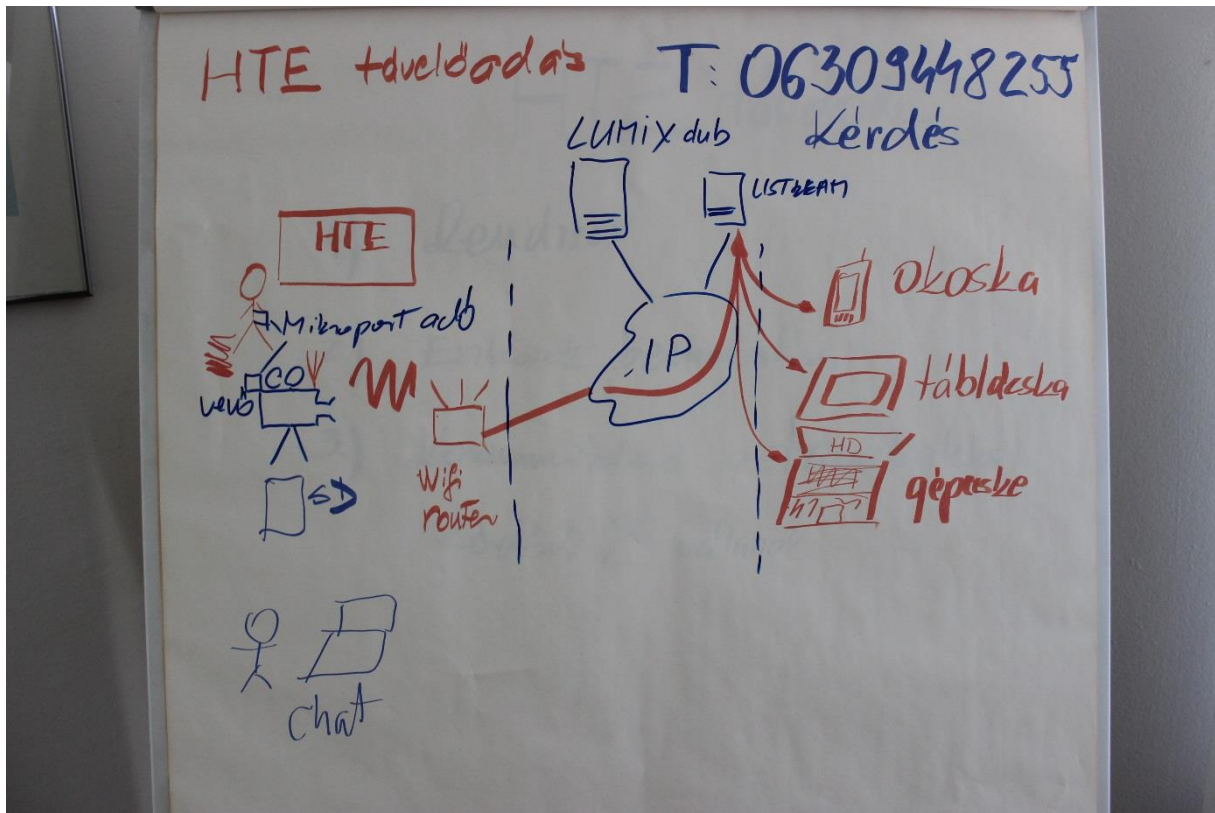 HTE távelőadás T: 06309448255
Kérdés
LUMiX dub
USTREAM
HTE
Mikroport adó
vevő
CO
SD
Wifi
router
IP
okoska
táblácska
HD
gépecske
chat